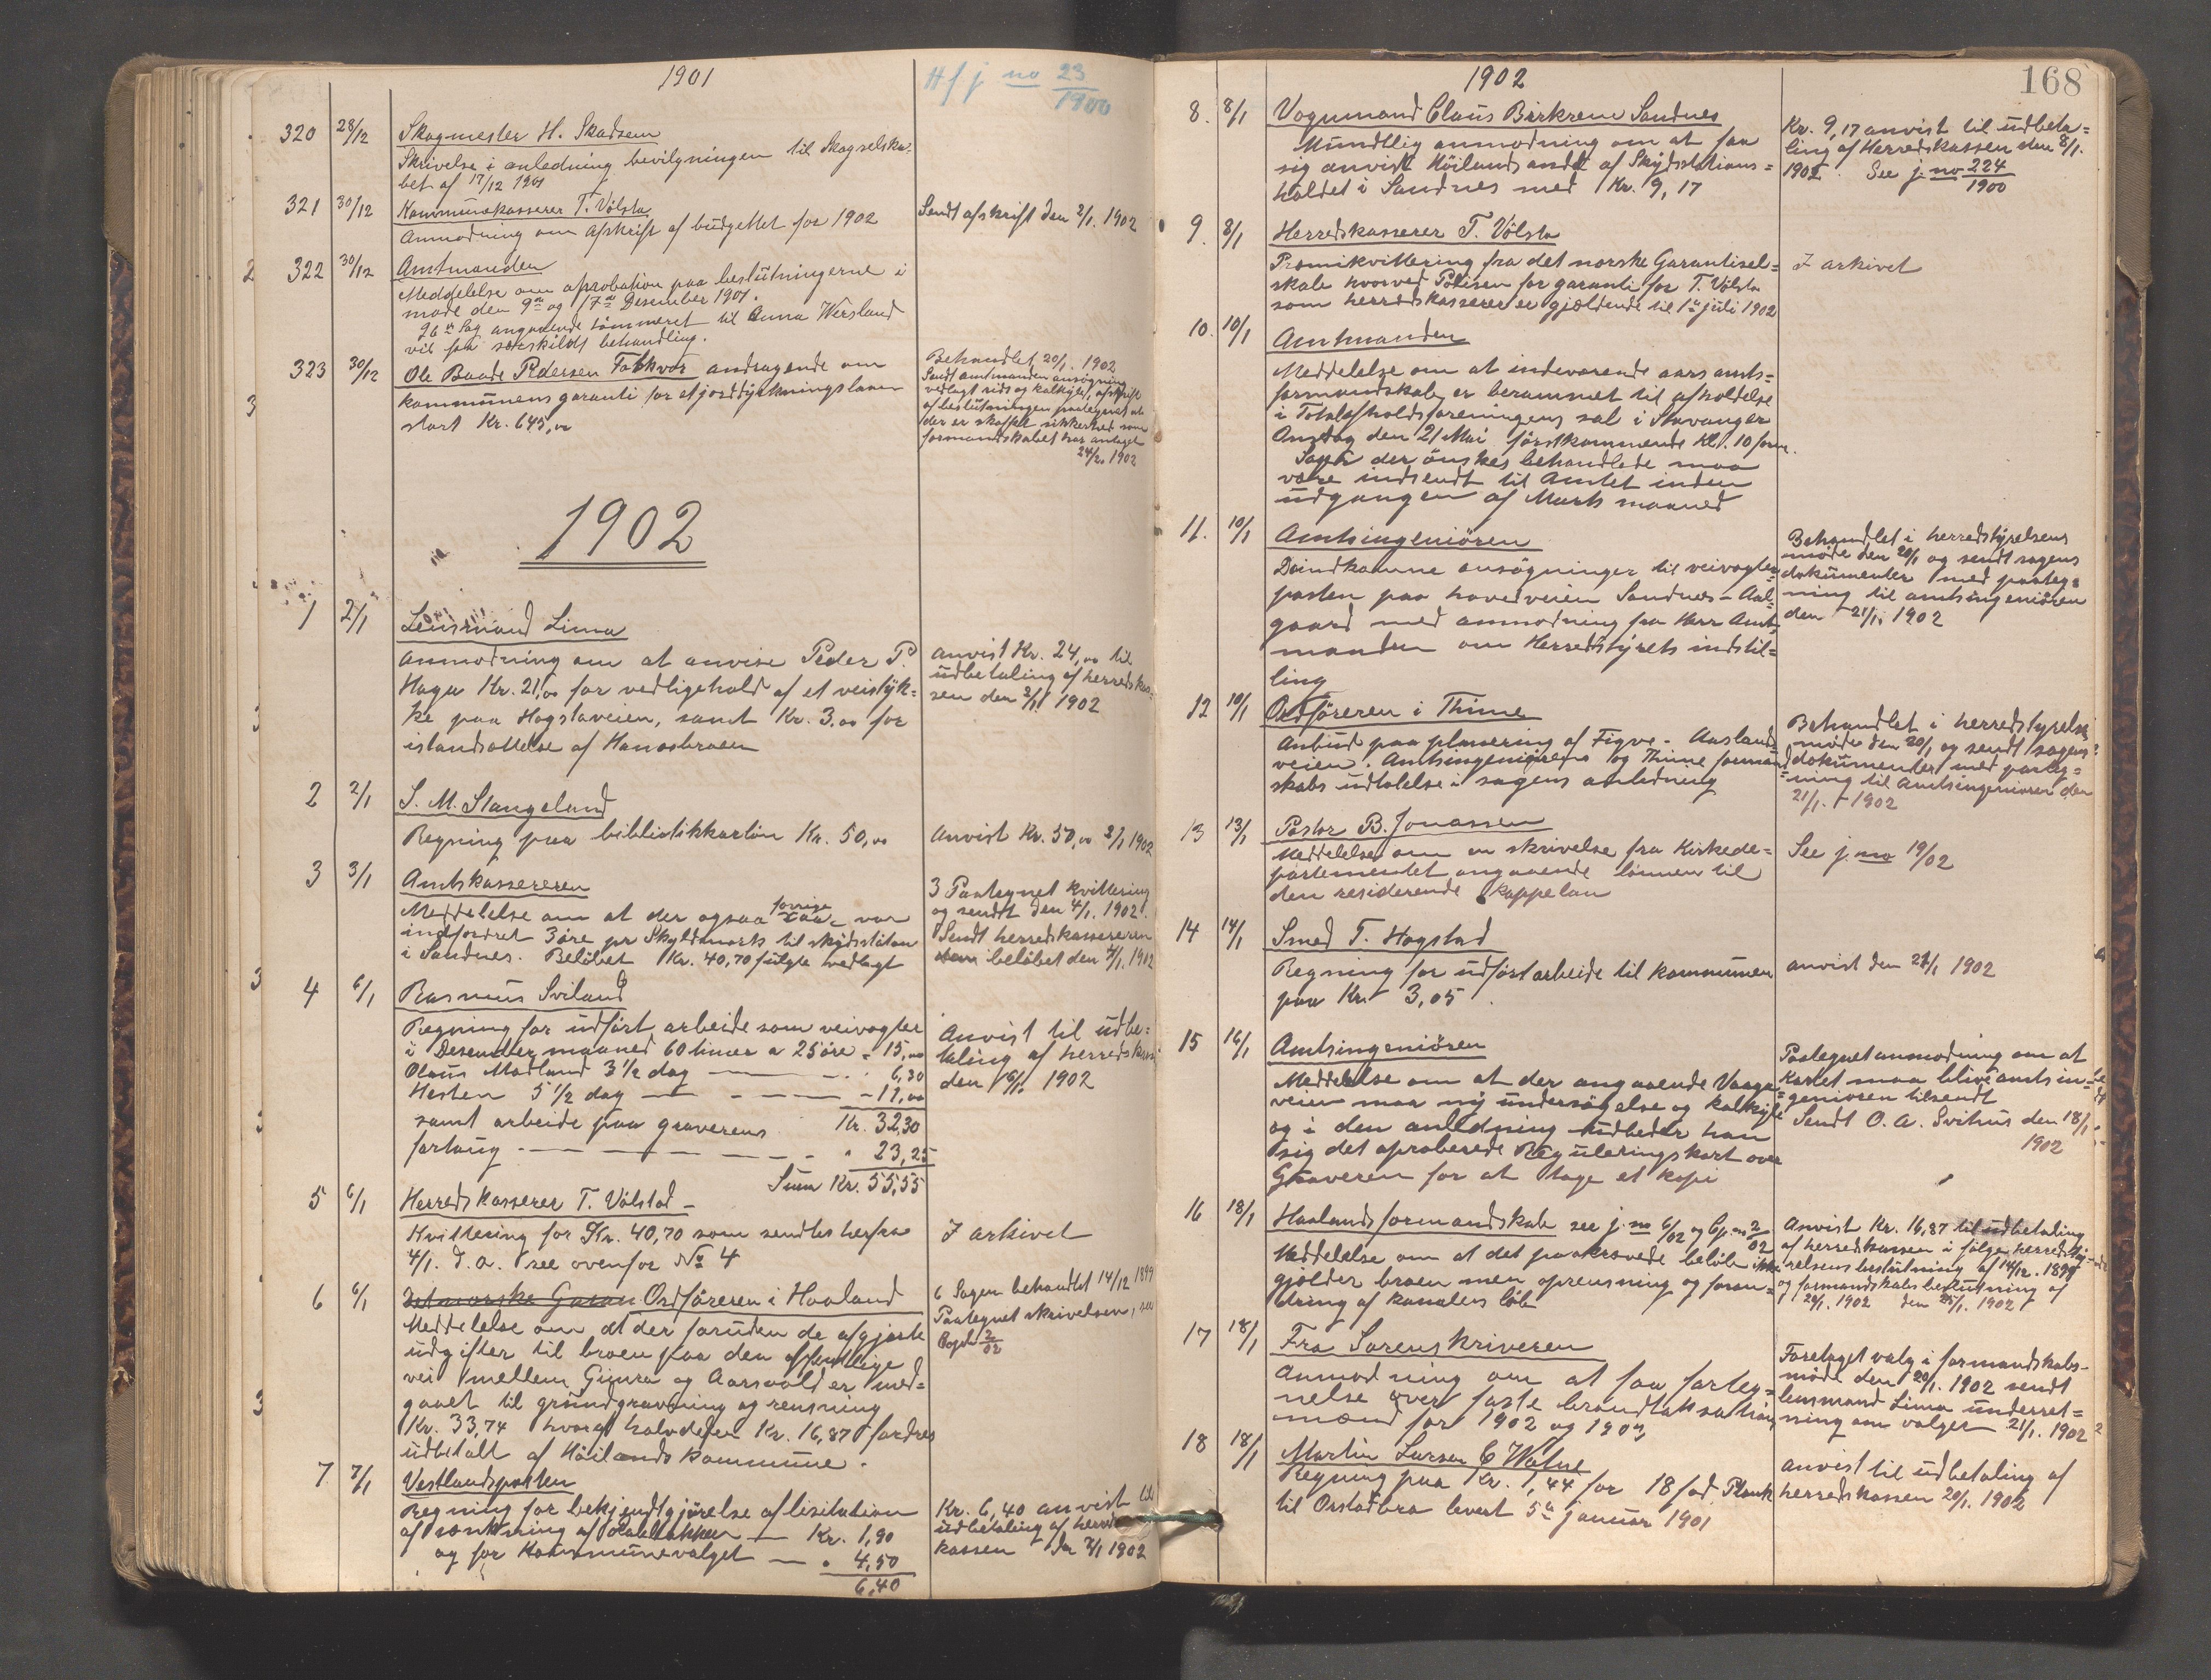 1901
H f j no 23/1900
320 28/12 Skogmester H. Skadsem
Skrivelse i anledning bevilgningen til Skogselska-
bet af 17/12 1901
321 30/12 Kommunekasserer T. Vølsta
Anmodning om afskrift af budgettet for 1902
Sendt afskrift den 2/1. 1902
322 30/12 Amtmanden
Meddelelse om aprobation paa beslutningerne i
møde den 9de og 17de Desember 1901.
96de Sag angaaende tømmeret til Anna Wersland
vil faa særskildt behandling.
323 30/12 Ole Baade Pedersen Folkvor andragende om
kommunens garanti for et jorddyrkningslaan
stort Kr. 645,00
Behandlet 20/1. 1902
Sendt amtmanden ansøgning
vedlagt rids og kalkyle, afskrift
af beslutningen paategnet at
der er skaffet sikkerhed som
formandskabet har antaget
24/2. 1902
1902
1 2/1 Lensmand Lima
Anmodning om at anvise Peder P.
Haga Kr. 21,00 for vedligehold af et veistyk-
ke paa Hogstaveien, samt Kr. 3.00 for
istandsættelse af Hanasbroen
anvist Kr. 24,00 til
udbetaling af herredskas-
sen den 2/1 1902
2 2/1 S. M. Stangeland
Regning paa bibliotikkarton Kr. 50,00
Anvist Kr. 50,00 2/1 1902
3 3/1 Amtskassereren
Meddelelse om at der ogsaa forrige aar var
indfordret 3 øre pr Skyldmark til skydsstation
i Sandnes. Beløbet Kr. 40,70 fulgte vedlagt
3 Paategnet kvittering
og sendt den 4/1. 1902.
Sendt herredskassereren
beløbet den 4/1. 1902
4 6/1 Rasmus Sviland
Regning for udført arbeide som veivogter
i Desember maaned 60 timer a 25 øre = 15,00
Olaus Madland 3 1/2 dag — 6,30
Hesten 5 1/2 dag — 11,00
samt arbeide paa graverens Kr. 32,30
fortaug — 23,25
Sum Kr. 55,55
Anvist til udbe-
taling af herredskassen
den 6/1. 1902
5 6/1 Herredskasserer T. Vølstad
Kvittering for Kr. 40,70 som sendtes herfra
4/1. d.a. see ovenfor No 4
I arkivet
6 6/1 Det norske Garan Ordføreren i Haaland
Meddelelse om at der foruden de afgjorte
udgifter til broen paa den offentlige
vei mellem Gimra og Aarsvold er med-
gaaet til grundgravning og rensning
Kr. 33,74 hvoraf halvdelen Kr. 16,87 fordres
udbetalt af Høilands kommune.
6 Sagen behandlet 14/12 1899
Paategnet skrivelsen, see
Copib 2/02
7 7/1 Vestlandsposten
Regning for bekjendtgjørelse af lisitation
af sænkning af — Kr. 1,90
og for Kommunevalget — " 4,50
6,40
Kr. 6,40 anvist til
udbetaling af herreds
kassen den 7/1 1902
1902
168
8. 8/1 Vognmand Claus Birkrem Sandnes
Mundtlig anmodning om at faa
sig anvist Höilands andel af Skydsstations-
holdet i Sandnes med Kr. 9,17
Kr. 9,17 anvist til udbeta-
ling af Herredskassen den 8/1.
1902. See j. no 224/1900
9. 8/1 Herredskasserer T. Vølsta
Præmikvittering fra det norske Garantisel-
skab hvorved Polisen for garanti for T. Vølsta
som herredskasserer er gjældende til 1ste juli 1902
I arkivet
10. 10/1 Amtmanden
Meddelelse om at indeværende aars amts-
formandskab er berammet til afholdelse
i Totalafholdsforeningens sal i Stavanger
Onsdag den 21 Mai førstkommende Kl. 10 form.
Sager der ønskes behandlede maa
være indsendt til Amtet inden
udgangen af Marts maaned
11. 10/1 Amtsingeniøren
De indkomne ansøgninger til veivogter-
posten paa hovedveien Sandnes - Aal-
gaard med anmodning fra Herr Amt-
manden om Herredstyrets indstil-
ling
Behandlet i herredstyrelsens
møde den 20/1 og sendt sagens
dokumenter med paateg-
ning til amtsingeniøren
den 21/1. 1902
12 10/1 Ordføreren i Thime
Anbud paa planering af Figve - Aaslands
veien. Amtsingeniørens og Thime formand
skabs udtalelse i sagens anledning
Behandlet i herredstyrelse
møde den 20/1 og sendt sagens
dokumenter med paateg-
ning til Amtsingeniøren den
21/1. 1902
13 13/1 Pastor B. Jonassen
Meddelelse om en skrivelse fra Kirkede-
partementet angaaende lønnen til
den residerende kappelan
See j. no 19/02
14 14/1 Smed T. Hogstad
Regning for udført arbeide til kommunen
paa Kr. 3,05
anvist den 21/1 1902
15 16/1 Amtsingeniøren
Meddelelse om at der angaaende Vaaga-
veien maa ny undersøgelse og kalkyle
og i den anledning udbeder han
sig det aproberede Reguleringskart over
Graveren for at tage et kopi
Paategnet anmodning om at
Kartet maa blive amtsin-
geniøren tilsendt
Sendt O. A. Svihus den 18/1
1902
16 18/1 Haalands formandskab see j. no 6/02 og Cj. no 2/02
Meddelelse om at det paakrævede beløb ikke
gjælder broen men oprensning og foran-
dring af kanalens løb
Anvist Kr. 16,87 til udbetaling
af herredskassen i følge herredsty-
relsens beslutning af 14/12. 1899
og formandskabs beslutning af
20/1. 1902 den 25/1. 1902
17 18/1 Fra Sorenskriveren
Anmodning om at faa forteg-
nelse over faste brandtaksations
mænd for 1902 og 1903
Foretaget valg i formandskabs-
møde den 20/1. 1902 sendt
lensmand Lima underret-
ning om valget 21/1. 1902
18 18/1 Martin Larsen C Watne
Regning paa Kr. 1,44 for 18 fod Plank
til Orstadbro levert 5te januar 1901
anvist til udbetaling af
herredskassen 20/1. 1902